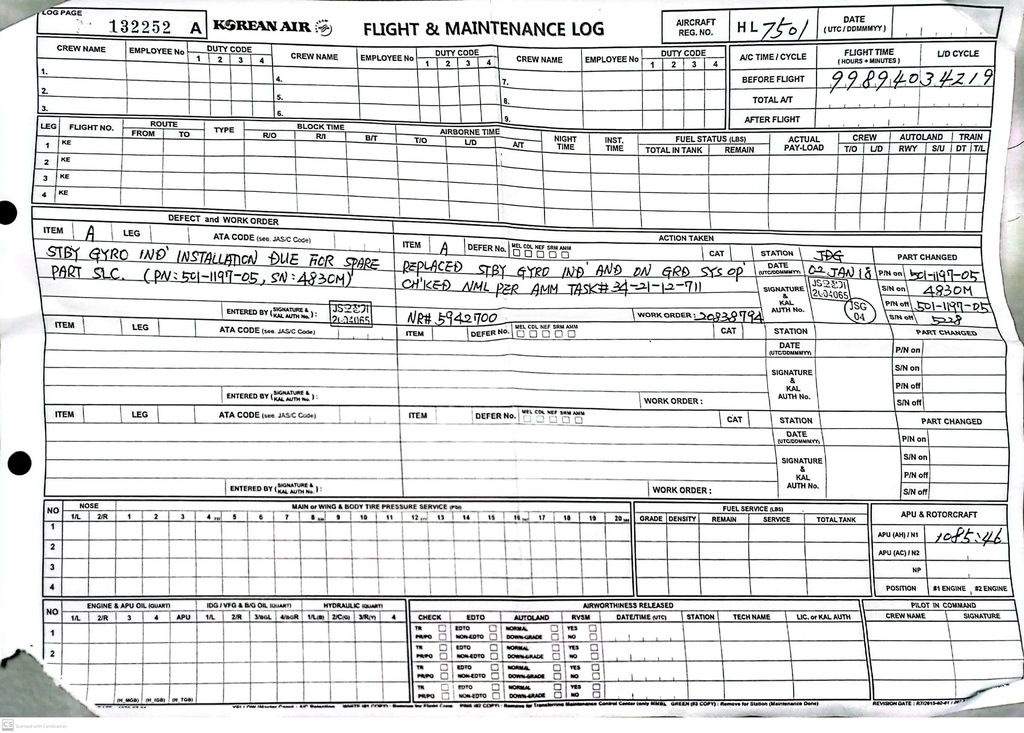 LOG PAGE 132252 A KOREAN AIR FLIGHT & MAINTENANCE LOG AIRCRAFT REG. NO. HL7501 DATE (UTC / DDMMMYY)
CREW NAME EMPLOYEE No DUTY CODE 1 2 3 4 CREW NAME EMPLOYEE No DUTY CODE 1 2 3 4 CREW NAME EMPLOYEE No DUTY CODE 1 2 3 4 A/C TIME / CYCLE FLIGHT TIME (HOURS + MINUTES) L/D CYCLE
1. 4. 7. BEFORE FLIGHT 9989403 4219
2. 5. 8. TOTAL A/T
3. 6. 9. AFTER FLIGHT
LEG FLIGHT NO. ROUTE FROM TO TYPE BLOCK TIME R/O R/I B/T AIRBORNE TIME T/O L/D A/T NIGHT TIME INST. TIME FUEL STATUS (LBS) TOTAL IN TANK REMAIN ACTUAL PAY-LOAD CREW T/O L/D AUTOLAND RWY S/U TRAIN DT T/L
1 KE
2 KE
3 KE
4 KE
DEFECT and WORK ORDER ACTION TAKEN
ITEM A LEG ATA CODE (see. JAS/C Code) ITEM A DEFER No. MEL CDL NEF SRM AMM CAT STATION JDG PART CHANGED
STBY GYRO IND' INSTALLATION DUE FOR SPARE
PART SLC. (PN:501-1197-05, SN:4830M)
REPLACED STBY GYRO IND' AND ON GRD SYS OP'
CH'KED NML PER AMM TASK# 34-21-12-711
DATE (UTC/DDMMMYY) 02 JAN 18 P/N on 501-1197-05
SIGNATURE & KAL AUTH No. 2L04065 JSG 04 S/N on 4830M
P/N off 501-1197-05
ENTERED BY (SIGNATURE & KAL AUTH No.) : 2L04065 NR# 5942700 WORK ORDER: 20838794 S/N off 5228
ITEM LEG ATA CODE (see. JAS/C Code) ITEM DEFER No. MEL CDL NEF SRM AMM CAT STATION PART CHANGED
DATE (UTC/DDMMMYY) P/N on
SIGNATURE & KAL AUTH No. S/N on
P/N off
ENTERED BY (SIGNATURE & KAL AUTH No.) : WORK ORDER : S/N off
ITEM LEG ATA CODE (see. JAS/C Code) ITEM DEFER No. MEL CDL NEF SRM AMM CAT STATION PART CHANGED
DATE (UTC/DDMMMYY) P/N on
SIGNATURE & KAL AUTH No. S/N on
P/N off
ENTERED BY (SIGNATURE & KAL AUTH No.) : WORK ORDER : S/N off
NO NOSE MAIN or WING & BODY TIRE PRESSURE SERVICE (PSI) FUEL SERVICE (LBS) APU & ROTORCRAFT
1/L 2/R 1 2 3 4 5 6 7 8 9 10 11 12 13 14 15 16 17 18 19 20 GRADE DENSITY REMAIN SERVICE TOTAL TANK
1 APU (AH) / N1 1085:46
2 APU (AC) / N2
3 NP
4 POSITION #1 ENGINE #2 ENGINE
NO ENGINE & APU OIL (QUART) IDG / VFG & B/G OIL (QUART) HYDRAULIC (QUART) AIRWORTHINESS RELEASED PILOT IN COMMAND
1/L 2/R 3 4 APU 1/L 2/R 3/BGL 4/BGR 1/L(B) 2/C(G) 3/R(Y) 4 CHECK EDTO AUTOLAND RVSM DATE/TIME (UTC) STATION TECH NAME LIC. or KAL AUTH CREW NAME SIGNATURE
1 TR EDTO NORMAL YES
PR/PO NON-EDTO DOWN-GRADE NO
2 TR EDTO NORMAL YES
PR/PO NON-EDTO DOWN-GRADE NO
TR EDTO NORMAL YES
PR/PO NON-EDTO DOWN-GRADE NO
TR EDTO NORMAL YES
(N_MGB) (N_IGB) (N_TGB) PR/PO NON-EDTO DOWN-GRADE NO
CS Scanned with CamScanner